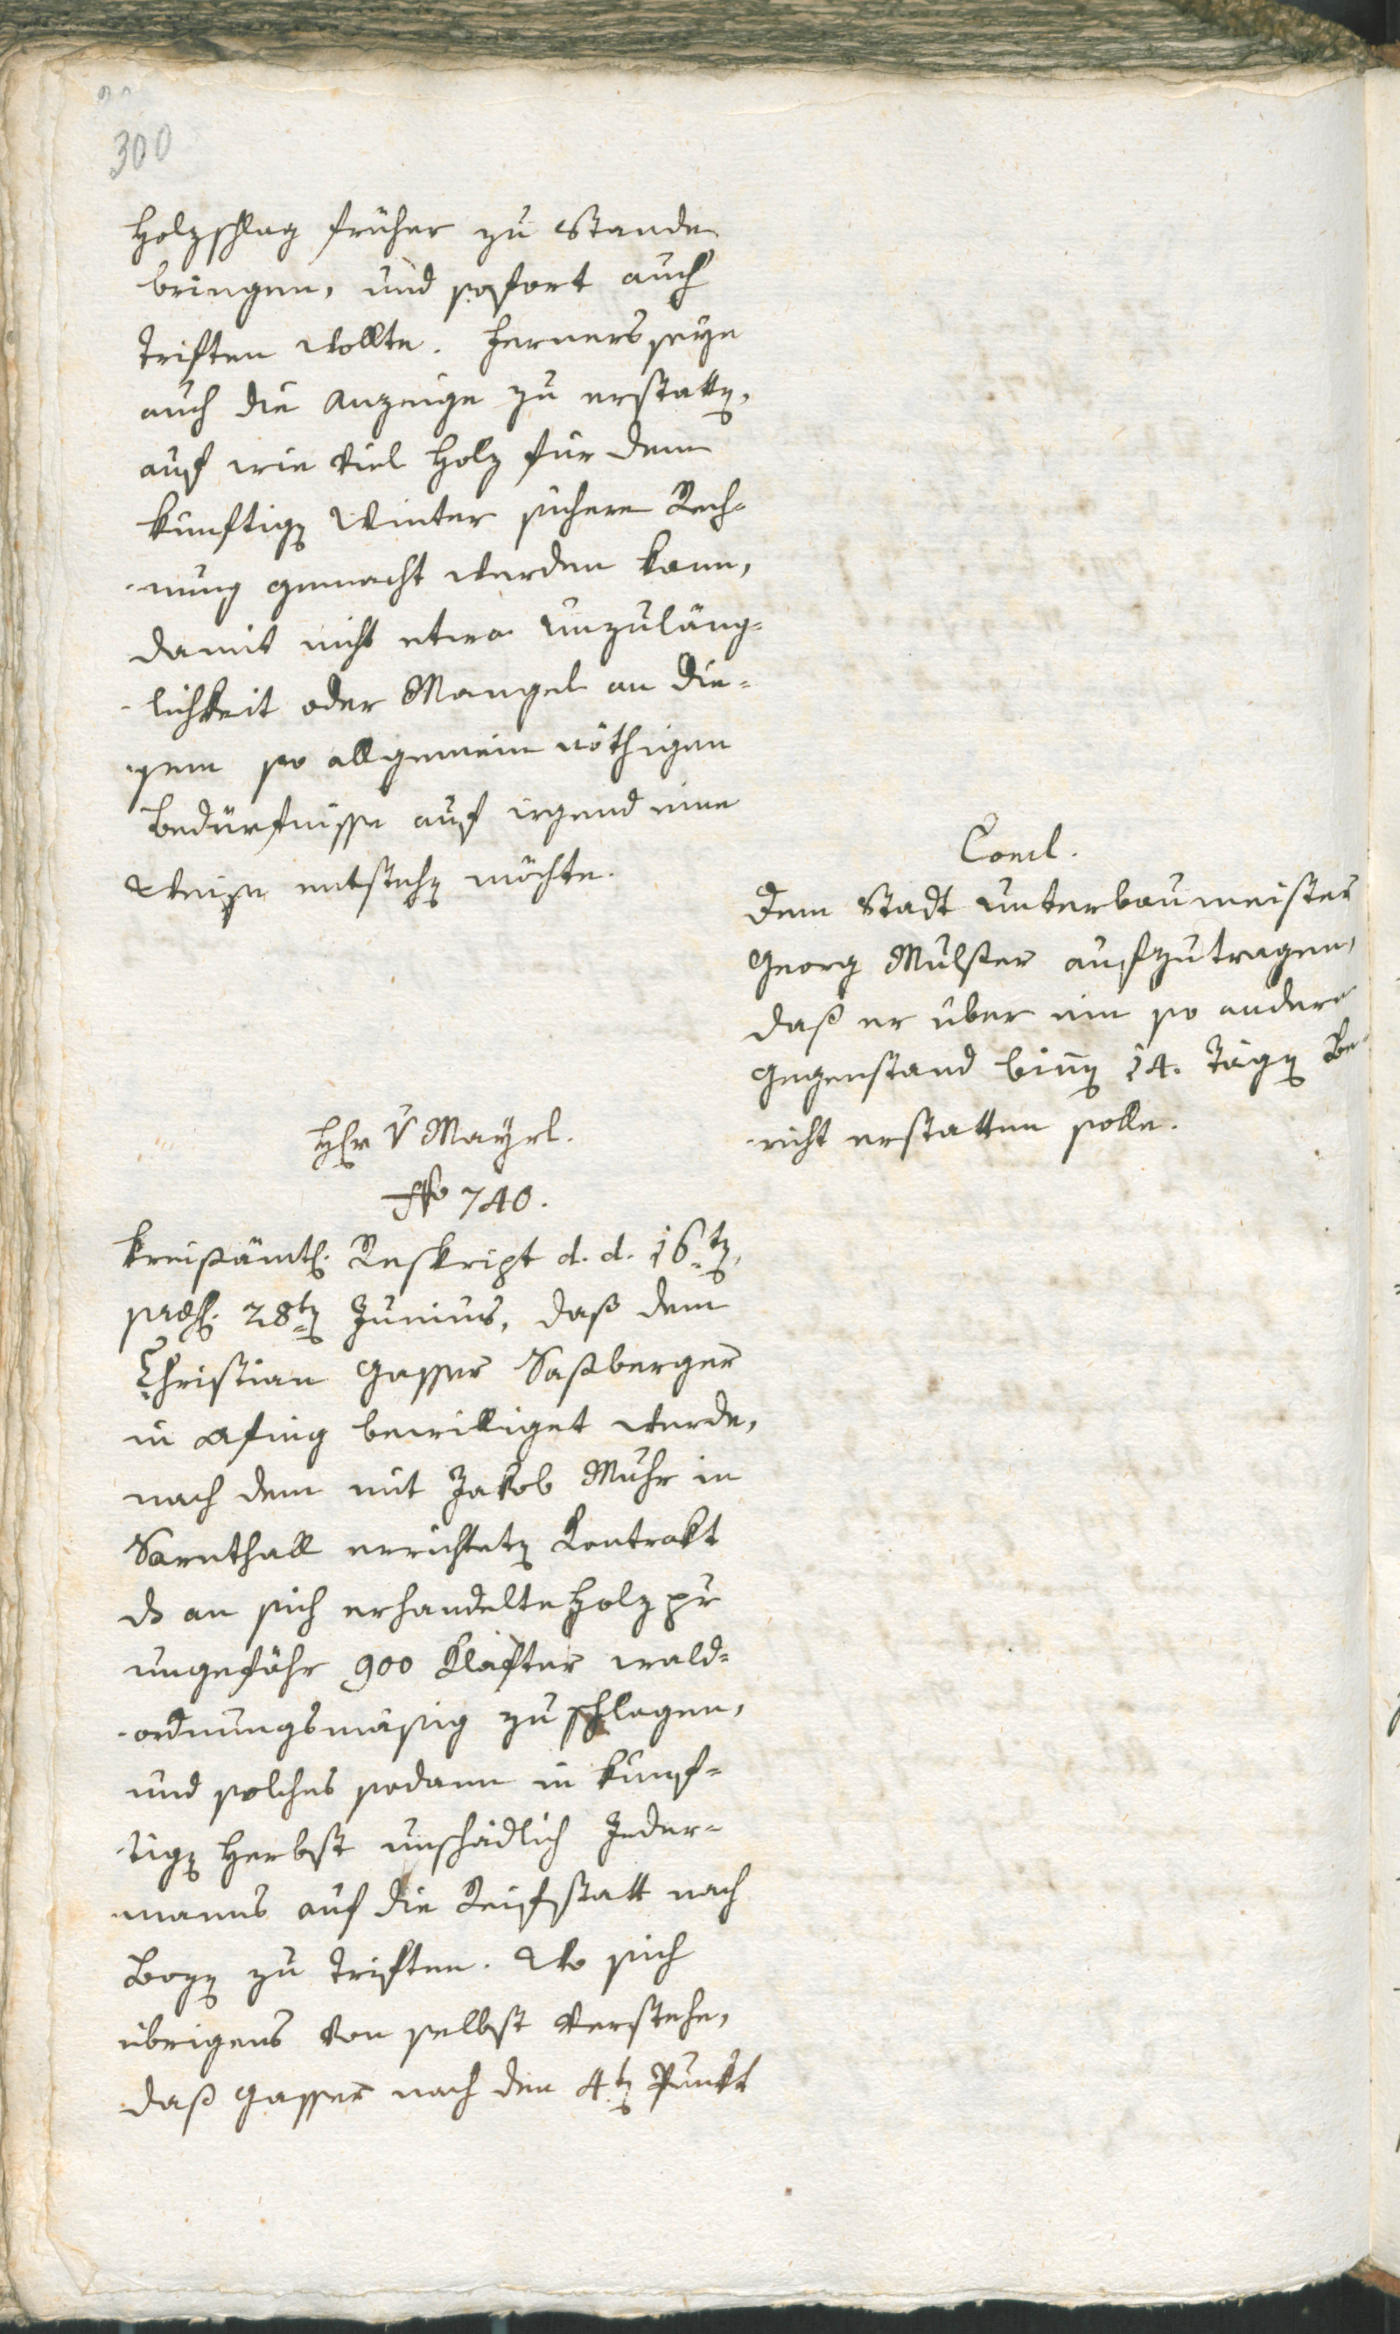 300
Holzschlag früher zu Stande
bringen, und sofort auch
triften wollte. Ferners seye
auch die Anzeige zu erstatten,
auf wie viel Holz für dem
künftigen Winter sichere Rech-
nung gemacht werden kann,
damit nicht etwa Unzuläng-
lichkeit oder Mangel an die-
sem so allgemein nöthigen
Bedürfnisse auf irgend eine
Weise entstehen möchte.
Concl.
Dem Stadt Unterbaumeister
Georg Mulser aufzutragen,
daß er über ein so andern
Gegenstand binnen 14. Tägen Be-
richt erstatten solle.
Hr v Mayrl.
No 740.
Kreisämtl. Reskript d. d. 16ten,
praes. 28ten Junius, daß dem
Christian Gasser Saßberger
in Afing bewilliget werde,
nach dem mit Jakob Muhr in
Sarnthall errichteten Kontrakt
ds an sich erhandelte Holz pr
ungefähr 900 Klafter wald-
ordnungsmäsig zu schlagen,
und solches sodann in künf-
tigen Herbst unschädlich Jeder-
manns auf die Reifstatt nach
Bozen zu triften. Wo sich
übrigens von selbst verstehe,
daß Gasser nach den 4ten Punkt